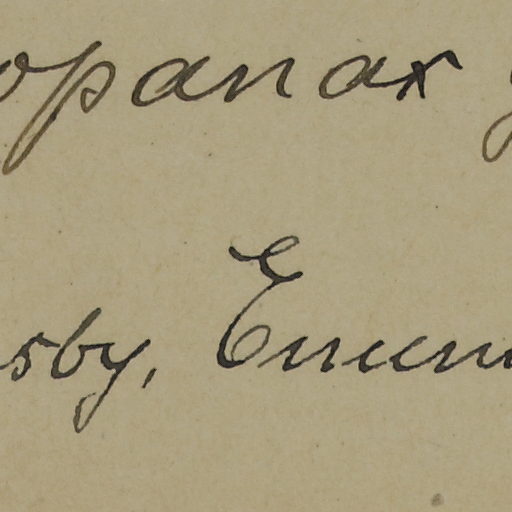 opanax
sby, Enum